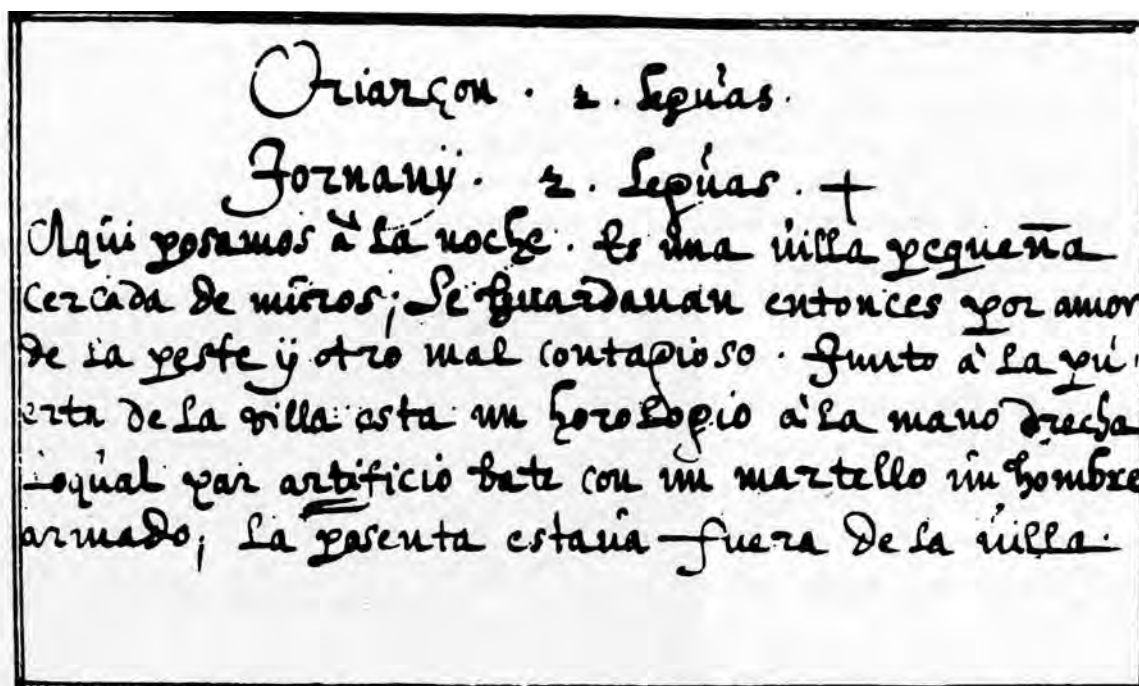 Oriarçon . 2 . Leguas .
Jornanÿ . 2 . Leguas . +
Aqui posamos à la noche . Es una villa pequeña
cercada de muros; Se guardauan entonces por amor
de la peste ÿ otro mal contagioso . Junto à la pu
erta de la villa esta un horologio à la mano drecha
loqual par artificio bate con un martello un hombre
armado; La posenta estaua fuera de la villa .